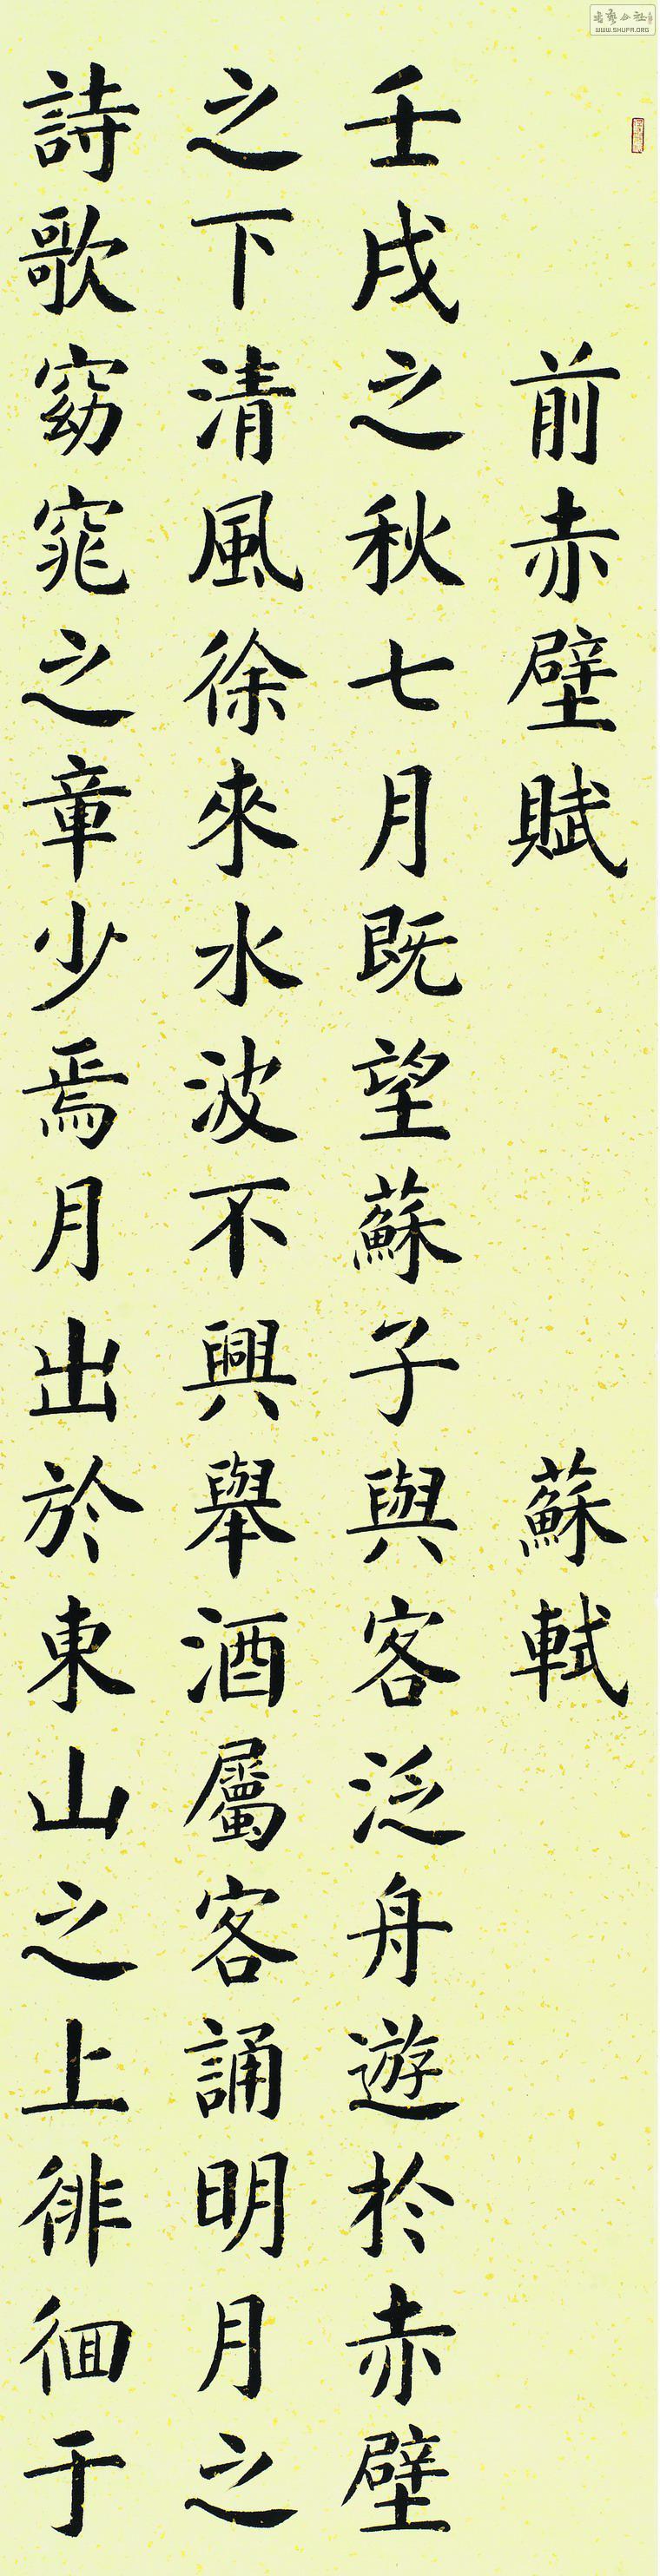 前赤壁賦 蘇軾
壬戌之秋七月既望蘇子與客泛舟遊於赤壁
之下清風徐來水波不興舉酒屬客誦明月之
詩歌窈窕之章少焉月出於東山之上徘徊于
WWW.SHUFA.ORG